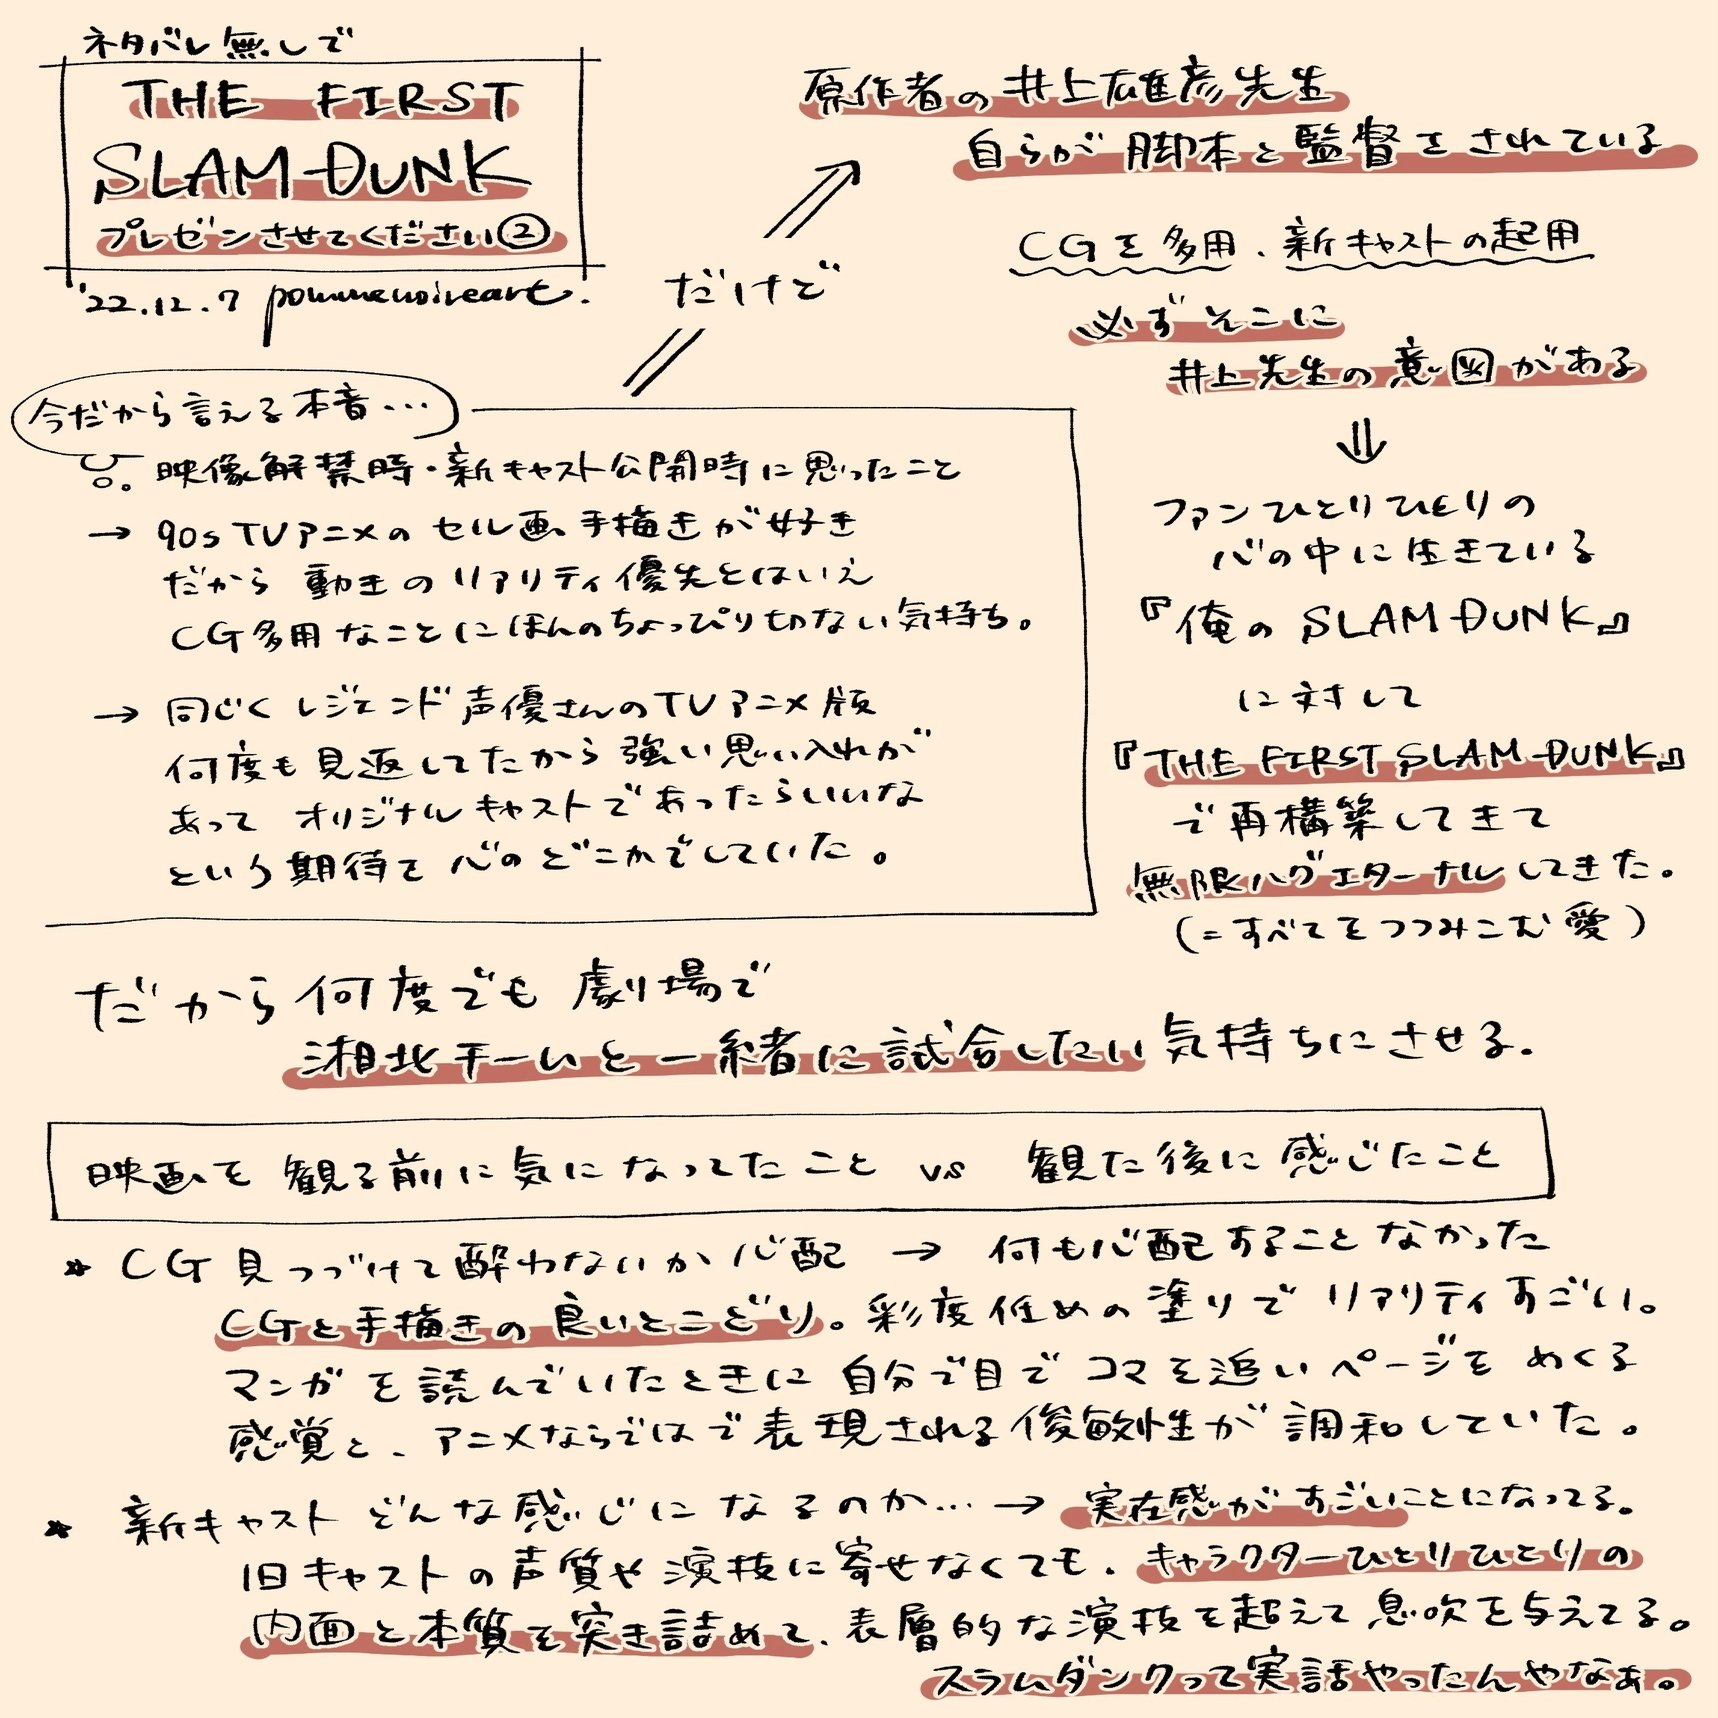 ネタバレ無しで
THE FIRST
SLAM DUNK
プレゼンさせてください②
'22.12.7 pommenoireart.
今だから言える本音…
映像解禁時・新キャスト公開時に思ったこと
→ 90s TVアニメのセル画、手描きが好き
だから 動きのリアリティ優先とはいえ
CG多用なことにほんのちょっぴり切ない気持ち。
→ 同じくレジェンド声優さんのTVアニメ版
何度も見返してたから強い思い入れが
あって オリジナルキャストであったらいいな
という期待を心のどこかでしていた。
だけど
原作者の井上雄彦先生
自らが脚本と監督をされている
CGを多用、新キャストの起用
必ずそこに
井上先生の意図がある
⇓
ファンひとりひとりの
心の中に生きている
『俺の SLAM DUNK』
に対して
『THE FIRST SLAM DUNK』
で再構築してきて
無限ハグエターナルしてきた。
(=すべてをつつみこむ愛)
だから何度でも劇場で
湘北チームと一緒に試合したい気持ちにさせる.
映画を観る前に気になってたこと vs 観た後に感じたこと
* CG見つづけて酔わないか心配 → 何も心配することなかった
CGと手描きの良いとこどり。彩度低めの塗りでリアリティすごい。
マンガを読んでいたときに自分で目でコマを追いページをめくる
感覚と、アニメならではで表現される俊敏性が調和していた。
* 新キャストどんな感じになるのか… → 実在感がすごいことになってる。
旧キャストの声質や演技に寄せなくても、キャラクターひとりひとりの
内面と本質を突き詰めて、表層的な演技を超えて息吹を与えてる。
スラムダンクって実話やったんやなぁ。